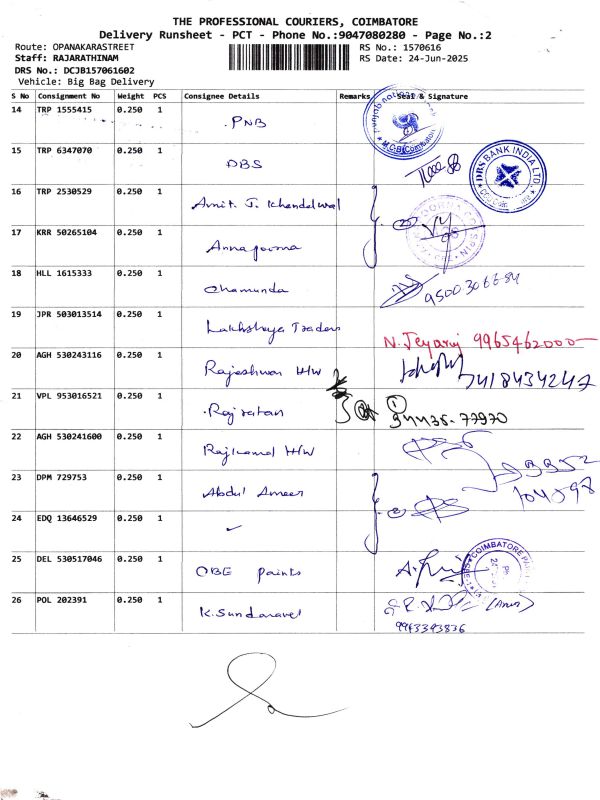 THE PROFESSIONAL COURIERS, COIMBATORE
Delivery Runsheet - PCT - Phone No.:9047080280 - Page No.:2
Route: OPANAKARASTREET RS No.: 1570616
Staff: RAJARATHINAM RS Date: 24-Jun-2025
DRS No.: DCJB157061602
Vehicle: Big Bag Delivery
S No Consignment No Weight PCS Consignee Details Remarks Seal & Signature
14 TRP 1555415 0.250 1 PNB
15 TRP 6347070 0.250 1 DBS DBS BANK INDIA LTD.
16 TRP 2530529 0.250 1 Amit. J. Khandelwal
17 KRR 50265104 0.250 1 Annapoorna
18 HLL 1615333 0.250 1 Chamunda 9500306684
19 JPR 503013514 0.250 1 Lakhshya Traders N. Jeyaraj 9965462000
20 AGH 530243116 0.250 1 Rajeshwari H/W 7418434247
21 VPL 953016521 0.250 1 Rajratan 94435-77970
22 AGH 530241600 0.250 1 Rajkamal H/W
23 DPM 729753 0.250 1 Abdul Ameer
24 EDQ 13646529 0.250 1
25 DEL 530517046 0.250 1 OBE paints COIMBATORE
26 POL 202391 0.250 1 K. Sundaravel
9943393836